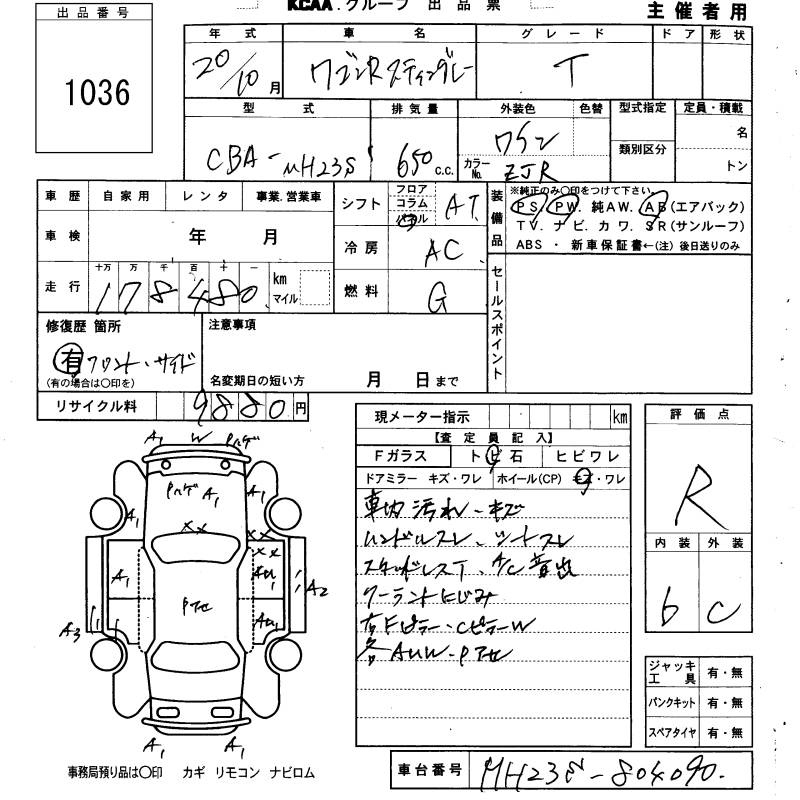 KCAA.グループ 出品票
主催者用
出品番号
1036
年式 車名 グレード ドア 形状
20/10月 ワゴンRスティングレー T
型式 排気量 外装色 色替 型式指定 定員・積載
CBA-MH23S 650 c.c. ワイン 類別区分 名
カラーNo. ZJR トン
車歴 自家用 レンタ 事業.営業車
シフト フロア コラム パネル AT
装備品 ※純正のみ〇印をつけて下さい。
PS. PW. 純AW. AB(エアバック)
TV. ナビ. カワ. SR(サンルーフ)
ABS ・ 新車保証書←(注) 後日送りのみ
車検 年 月
冷房 AC
走行 十万 万 千 百 十 一
178480 km マイル
燃料 G
セールスポイント
修復歴 箇所
有 フロント・サイド
(有の場合は〇印を)
注意事項
名変期日の短い方 月 日まで
リサイクル料 9880 円
現メーター指示 km
【査定員記入】
Fガラス トビ石 ヒビワレ
ドアミラー キズ・ワレ ホイール(CP) キズ・ワレ
車内汚れ・キズ
ハンドルスレ、シートスレ
スタッドレスT、A/C音出
クーラントにじみ
右Fピラー・CピラーW
各AUW・Pアセ
評価点
R
内装 外装
6 C
A1 W Pハゲ
PハゲA1 A1
A1
XX
XX
A1 AU1
A2
Pアセ
A3
AU1
A1 A1
ジャッキ工具 有・無
パンクキット 有・無
スペアタイヤ 有・無
事務局預り品は〇印 カギ リモコン ナビロム
車台番号 MH23S-804090.